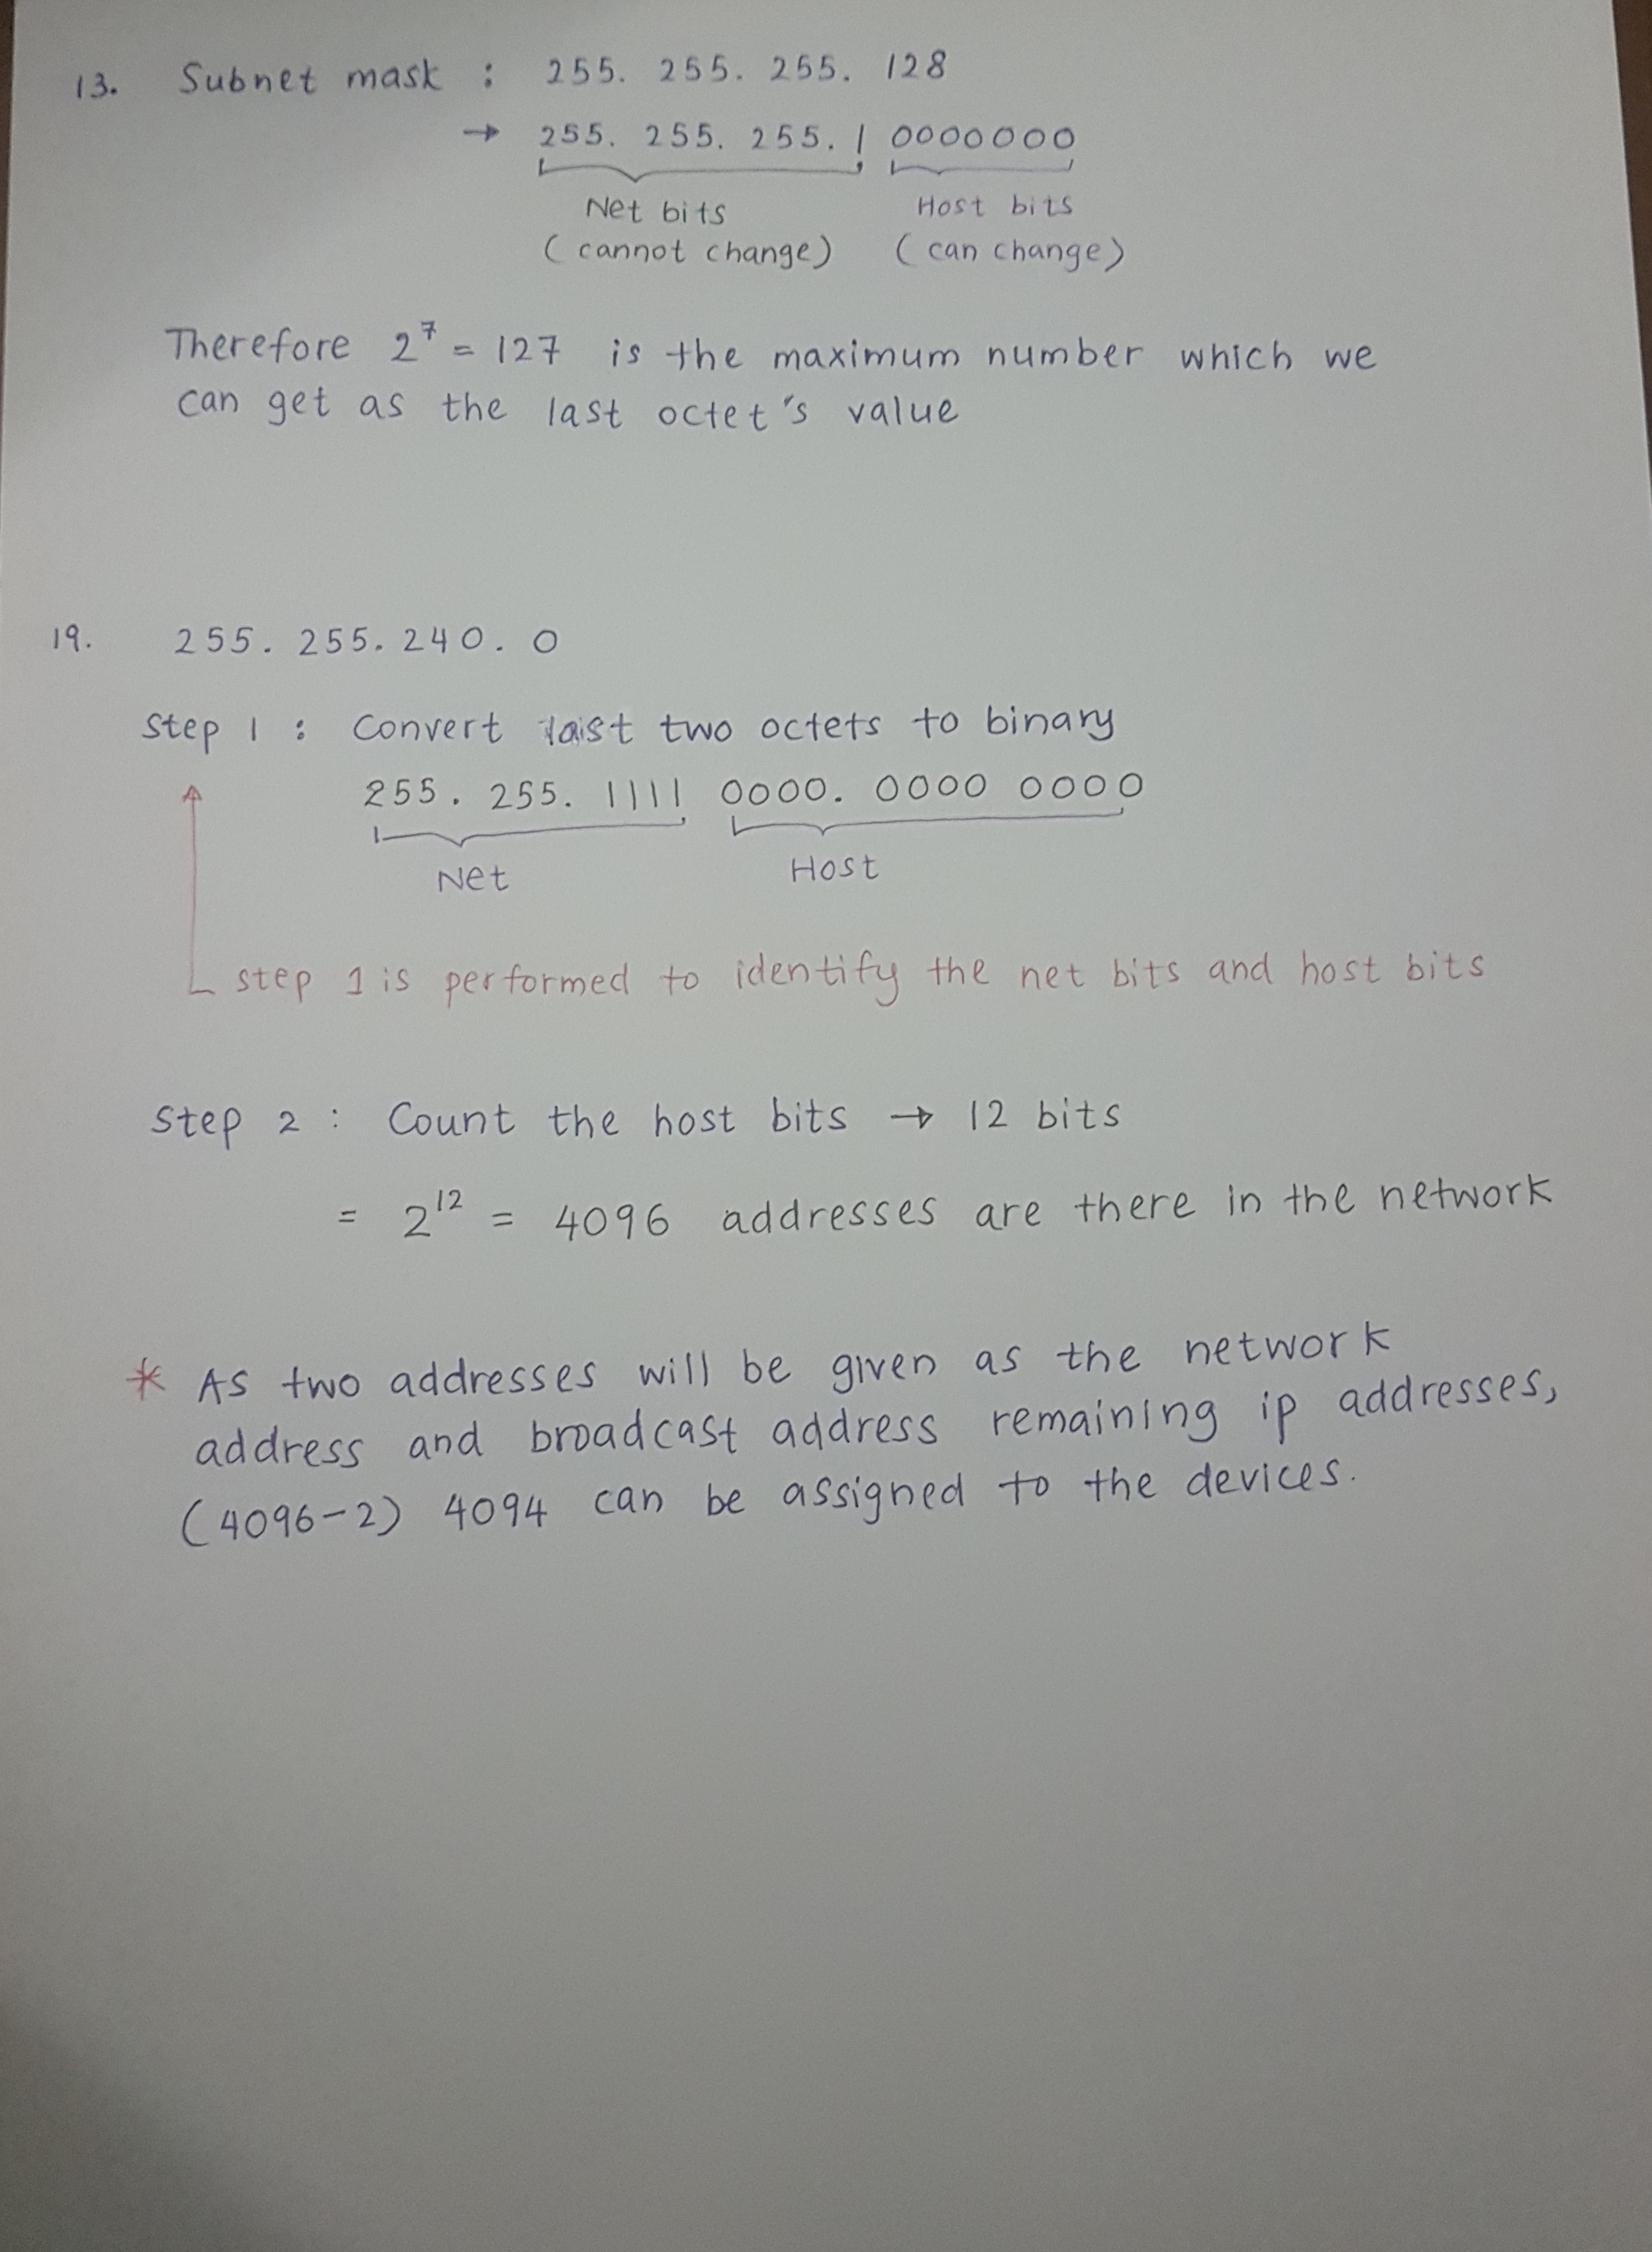 13. Subnet mask : 255. 255. 255. 128
→ 255. 255. 255. 1 0000000
Net bits Host bits
(cannot change) (can change)
Therefore 2⁷ = 127 is the maximum number which we
can get as the last octet's value
19. 255. 255. 240. 0
Step 1 : Convert last two octets to binary
255. 255. 1111 0000. 0000 0000
Net Host
step 1 is performed to identify the net bits and host bits
Step 2 : Count the host bits → 12 bits
= 2¹² = 4096 addresses are there in the network
* As two addresses will be given as the network
address and broadcast address remaining ip addresses,
(4096-2) 4094 can be assigned to the devices.